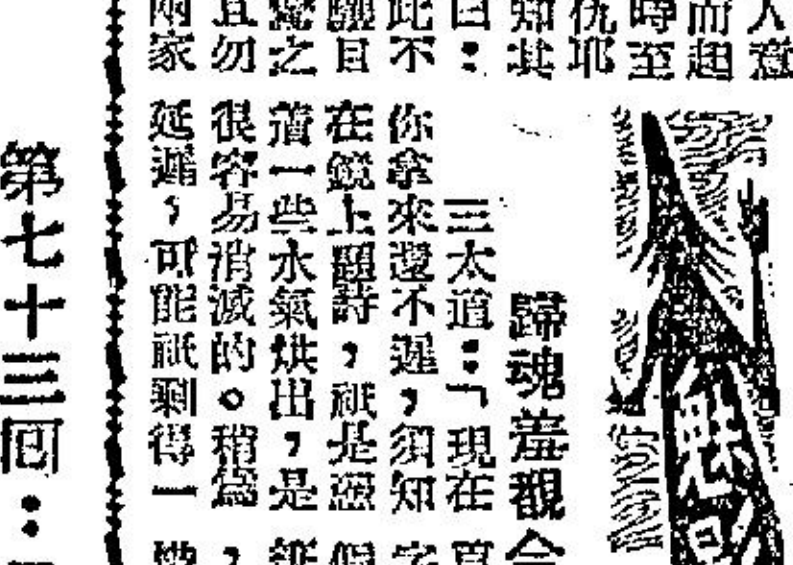 人意
而起
時至
仇耶
知其
曰：
此不
目
之
勿
兩家
魅影
歸魂羞覩合
三太道：「現在
你拿來還不遲，須知
在鏡上題詩，祇是憑
着一些水氣烘出，是
很容易消滅的。稍爲，
延遲，可能祇剩得一
第七十三回：